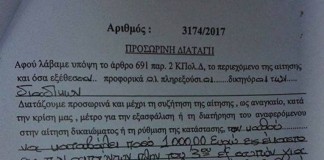 Αριθμός : 3174/2017
ΠΡΟΣΩΡΙΝΗ ΔΙΑΤΑΓΗ
Αφού λάβαμε υπόψη το άρθρο 691 παρ. 2 ΚΠολ.Δ, το περιεχόμενο της αίτησης
και όσα εξέθεσαν προφορικά οι πληρεξούσιοι δικηγόροι των
διαδίκων
Διατάζουμε προσωρινά και μέχρι τη συζήτηση της αίτησης , ως αναγκαίο, κατά
την κρίση μας , μέτρο για την εξασφάλιση ή τη διατήρηση του αναφερόμενου
στην αίτηση δικαιώματος ή τη ρύθμιση της κατάστασης,
ποσό 1.000,00 Ευρώ